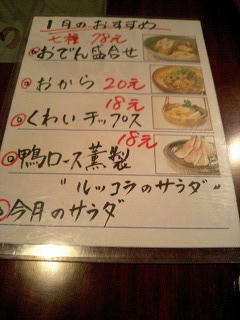 1月のおすすめ
七種 78元
おでん盛合せ
20元
おから
18元
くわいチップス
18元
鴨ロース薫製
"ルッコラのサラダ"
今月のサラダ